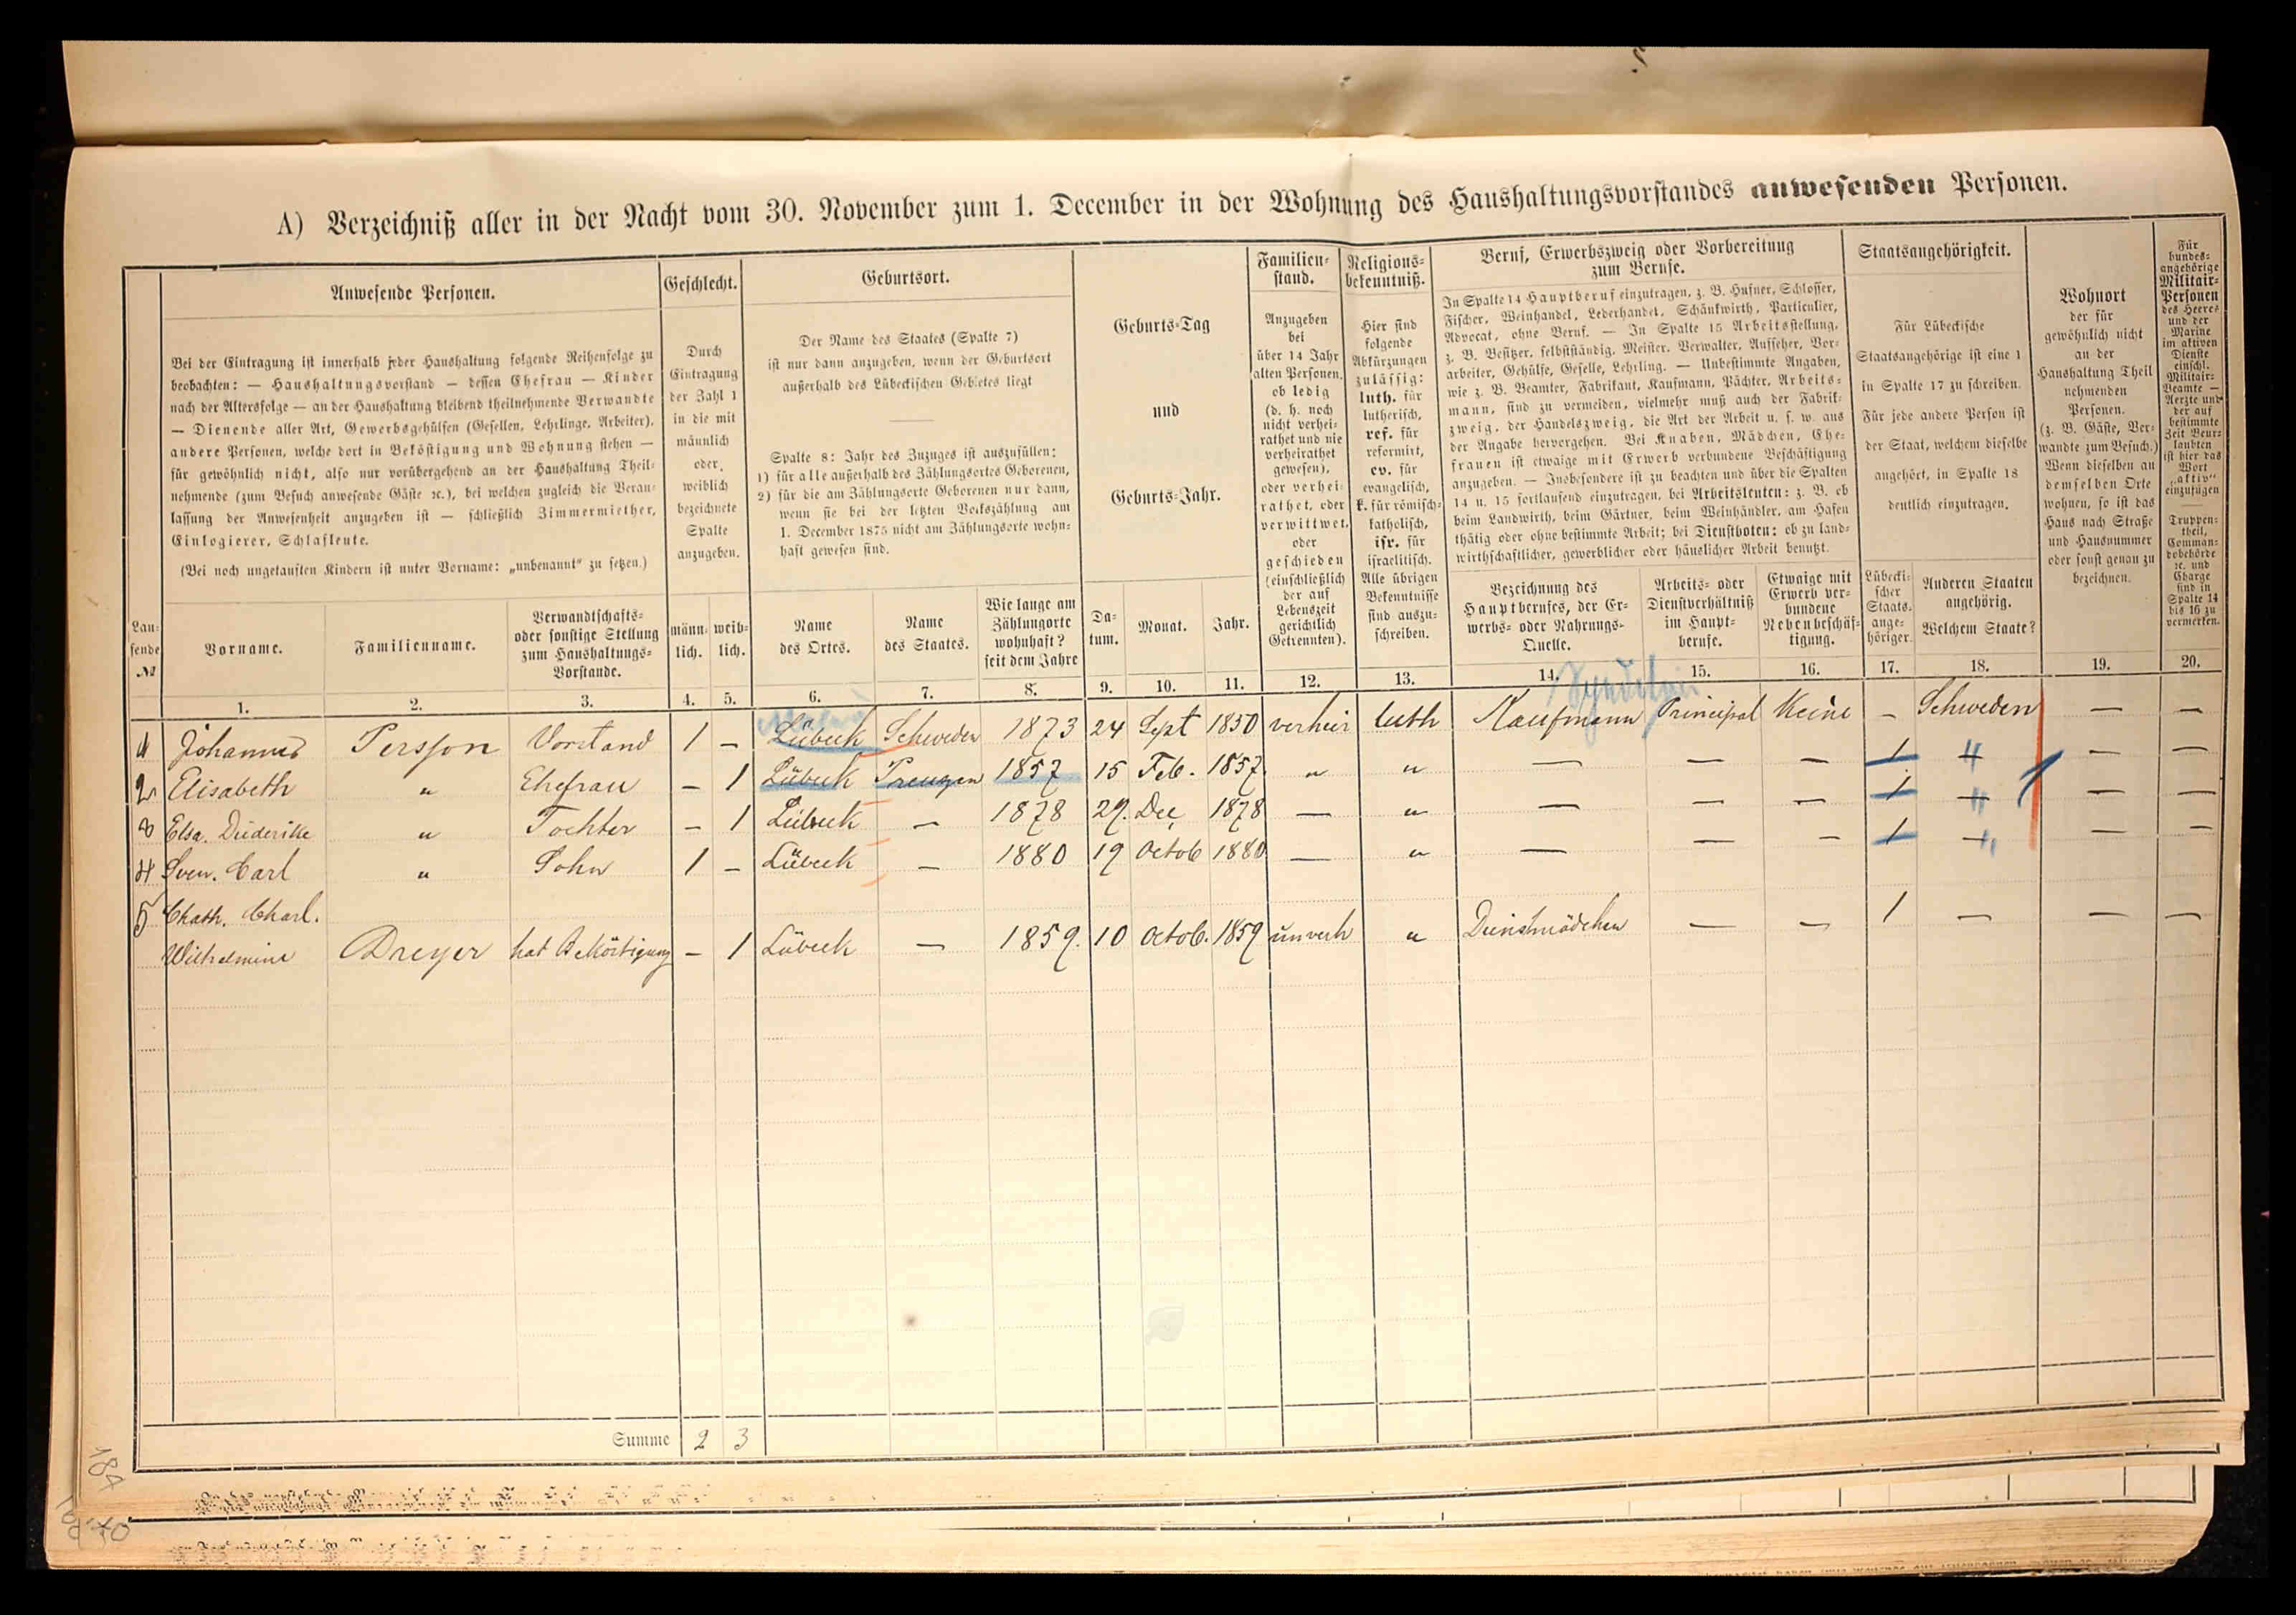 A) Verzeichniß aller in der Nacht vom 30. November zum 1. December in der Wohnung des Haushaltungsvorstandes anwesenden Personen.
Anwesende Personen.
Bei der Eintragung ist innerhalb jeder Haushaltung folgende Reihenfolge zu
beobachten: — Haushaltungsvorstand — dessen Ehefrau — Kinder
nach der Altersfolge — an der Haushaltung bleibend theilnehmende Verwandte
— Dienende aller Art, Gewerbsgehülfen (Gesellen, Lehrlinge, Arbeiter),
andere Personen, welche dort in Beköstigung und Wohnung stehen —
für gewöhnlich nicht, also nur vorübergehend an der Haushaltung Theil-
nehmende (zum Besuch anwesende Gäste ꝛc.), bei welchen zugleich die Veran-
lassung der Anwesenheit anzugeben ist — schließlich Zimmermiether,
Einlogierer, Schlafleute.
(Bei noch ungetauften Kindern ist unter Vorname: „unbenannt“ zu setzen.)
Geschlecht.
Durch
Eintragung
der Zahl 1
in die mit
männlich
oder
weiblich
bezeichnete
Spalte
anzugeben.
Geburtsort.
Der Name des Staates (Spalte 7)
ist nur dann anzugeben, wenn der Geburtsort
außerhalb des Lübeckischen Gebietes liegt
Spalte 8: Jahr des Zuzuges ist auszufüllen:
1) für alle außerhalb des Zählungsortes Geborenen,
2) für die am Zählungsorte Geborenen nur dann,
wenn sie bei der letzten Volkszählung am
1. December 1875 nicht am Zählungsorte wohn-
haft gewesen sind.
Geburts-Tag
und
Geburts-Jahr.
Familien-
stand.
Anzugeben
bei
über 14 Jahr
alten Personen,
ob ledig
(d. h. noch
nicht verhei-
rathet und nie
verheirathet
gewesen),
oder verhei-
rathet, oder
verwittwet,
oder
geschieden
(einschließlich
der auf
Lebenszeit
gerichtlich
Getrennten).
Religions-
bekenntniß.
Hier sind
folgende
Abkürzungen
zulässig:
luth. für
lutherisch,
ref. für
reformirt,
ev. für
evangelisch,
k. für römisch-
katholisch,
isr. für
israelitisch.
Alle übrigen
Bekenntnisse
sind auszu-
schreiben.
Beruf, Erwerbszweig oder Vorbereitung
zum Berufe.
In Spalte 14 Hauptberuf einzutragen, z. B. Hufner, Schlosser,
Fischer, Weinhandel, Lederhandel, Schänkwirth, Particulier,
Advocat, ohne Beruf. — In Spalte 15 Arbeitsstellung,
z. B. Besitzer, selbstständig, Meister, Verwalter, Aufseher, Vor-
arbeiter, Gehülfe, Geselle, Lehrling. — Unbestimmte Angaben,
wie z. B. Beamter, Fabrikant, Kaufmann, Pächter, Arbeits-
mann, sind zu vermeiden, vielmehr muß auch der Fabrik-
zweig, der Handelszweig, die Art der Arbeit u. s. w. aus
der Angabe hervorgehen. Bei Knaben, Mädchen, Ehe-
frauen ist etwaige mit Erwerb verbundene Beschäftigung
anzugeben. — Insbesondere ist zu beachten und über die Spalten
14 u. 15 fortlaufend einzutragen, bei Arbeitsleuten: z. B. ob
beim Landwirth, beim Gärtner, beim Weinhändler, am Hafen
thätig oder ohne bestimmte Arbeit; bei Dienstboten: ob zu land-
wirthschaftlicher, gewerblicher oder häuslicher Arbeit benutzt.
Staatsangehörigkeit.
Für Lübeckische
Staatsangehörige ist eine 1
in Spalte 17 zu schreiben.
Für jede andere Person ist
der Staat, welchem dieselbe
angehört, in Spalte 18
deutlich einzutragen.
Wohnort
der für
gewöhnlich nicht
an der
Haushaltung Theil
nehmenden
Personen.
(z. B. Gäste, Ver-
wandte zum Besuch.)
Wenn dieselben an
demselben Orte
wohnen, so ist das
Haus nach Straße
und Hausnummer
oder sonst genau zu
bezeichnen.
Für
bundes-
angehörige
Militair-
Personen
des Heeres
und der
Marine
im aktiven
Dienste
einschl.
Militair-
Beamte —
Aerzte und
der auf
bestimmte
Zeit Beur-
laubten
ist hier das
Wort
„aktiv“
einzufügen
Truppen-
theil,
Comman-
dobehörde
ꝛc. und
Charge
sind in
Spalte 14
bis 16 zu
vermerken.
Lau-
fende
№
Vorname.
Familienname.
Verwandtschafts-
oder sonstige Stellung
zum Haushaltungs-
Vorstande.
männ-
lich.
weib-
lich.
Name
des Ortes.
Name
des Staates.
Wie lange am
Zählungorte
wohnhaft?
seit dem Jahre
Da-
tum.
Monat.
Jahr.
Bezeichnung des
Hauptberufes, der Er-
werbs- oder Nahrungs-
Quelle.
Arbeits- oder
Dienstverhältniß
im Haupt-
berufe.
Etwaige mit
Erwerb ver-
bundene
Nebenbeschäf-
tigung.
Lübecki-
scher
Staats-
ange-
höriger.
Anderen Staaten
angehörig.
Welchem Staate?
1. 2. 3. 4. 5. 6. 7. 8. 9. 10. 11. 12. 13. 14. 15. 16. 17. 18. 19. 20.
1 Johannes Persson Vorstand 1 — Lübeck Schweden 1873 24 Sept 1850 verheir luth Kaufmann Principal Keine — Schweden — —
2 Elisabeth " Ehefrau — 1 Lübeck Preussen 1857 15 Feb. 1857 " " — — — 1 " — —
3 Elsa. Diederike " Tochter — 1 Lübeck — 1878 29. Dec 1878 — " — — — 1 — " — —
4 Sven. Carl " Sohn 1 — Lübeck — 1880 19 Octob 1880 — " — — — 1 — " — —
5 Chath. Charl.
Wilhelmine Dreyer hat Beköstigung — 1 Lübeck — 1859. 10 Octob. 1859 unverh " Dienstmädchen — — 1 — — —
Summe 2 3
184